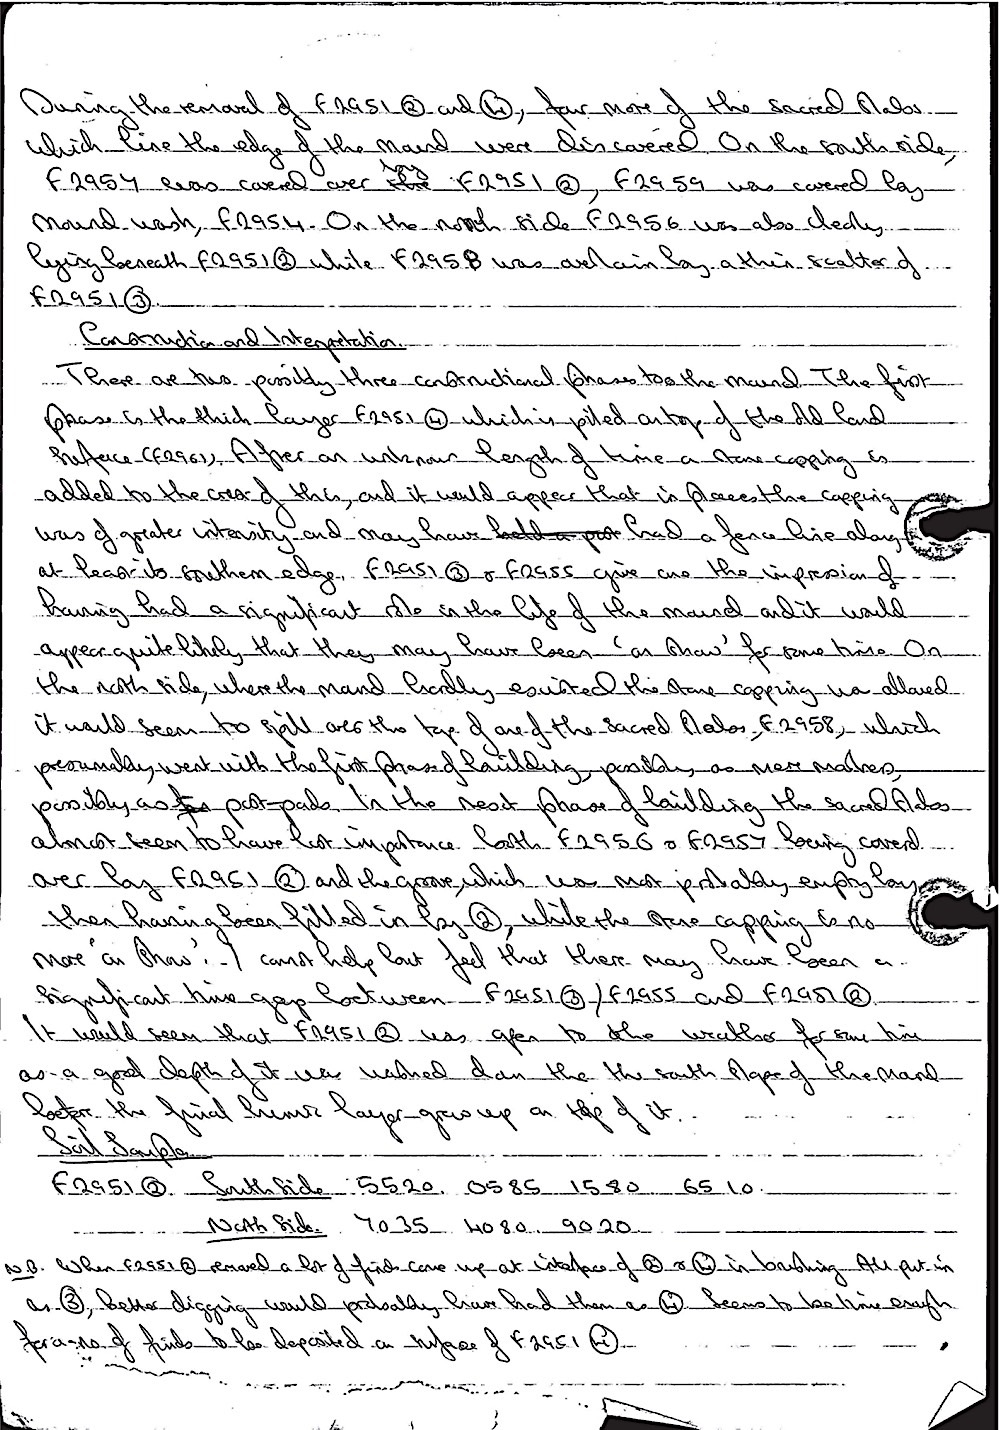 During the removal of F2951 ② and ④, four more of the sacred slabs
which line the edge of the mound were discovered. On the south side,
F2957 was covered over by F2951 ②, F2959 was covered by
mound wash, F2954. On the north side F2956 was also clearly
lying beneath F2951 ② while F2958 was overlain by a thin scatter of
F2951 ③.
Construction and Interpretation.
There are two possibly three constructional phases to the mound. The first
phase is the thick layer F2951 ④ which is piled on top of the old land
surface (F2961). After an unknown length of time a stone capping is
added to the crest of this, and it would appear that in places the capping
was of greater intensity and may have held a post had a fence line along
at least its southern edge. F2951 ③ & F2955 give one the impression of
having had a significant role in the life of the mound and it would
appear quite likely that they may have been 'on show' for some time. On
the north side, where the mound hardly existed the stone capping was allowed
it would seem to spill over the top of one of the sacred slabs, F2958, which
presumably went with the first phase of building, possibly as mere markers,
possibly as post-pads. In the next phase of building the sacred slabs
almost seem to have lost importance both F2956 & F2957 being covered
over by F2951 ② and the groove, which was most probably empty by
then having been filled in by ②, while the stone capping is no
more 'on show'. I cannot help but feel that there may have been a
significant time gap between F2951 ③ / F2955 and F2951 ②.
It would seem that F2951 ② was open to the weather for some time
as a good depth of it was washed down the the south slope of the mound
before the final humic layer grew up on top of it.
Soil Samples
F2951 ② South Side 5520. 0585 1580 6510.
North Side. 7035 4080. 9020.
N.B. When F2951 ② removed a lot of finds came up at interface of ② & ④ in brushing. All put in
as ②, better digging would probably have had them as ④. Seems to be time enough
for a no of finds to be deposited on surface of F2951 ④.